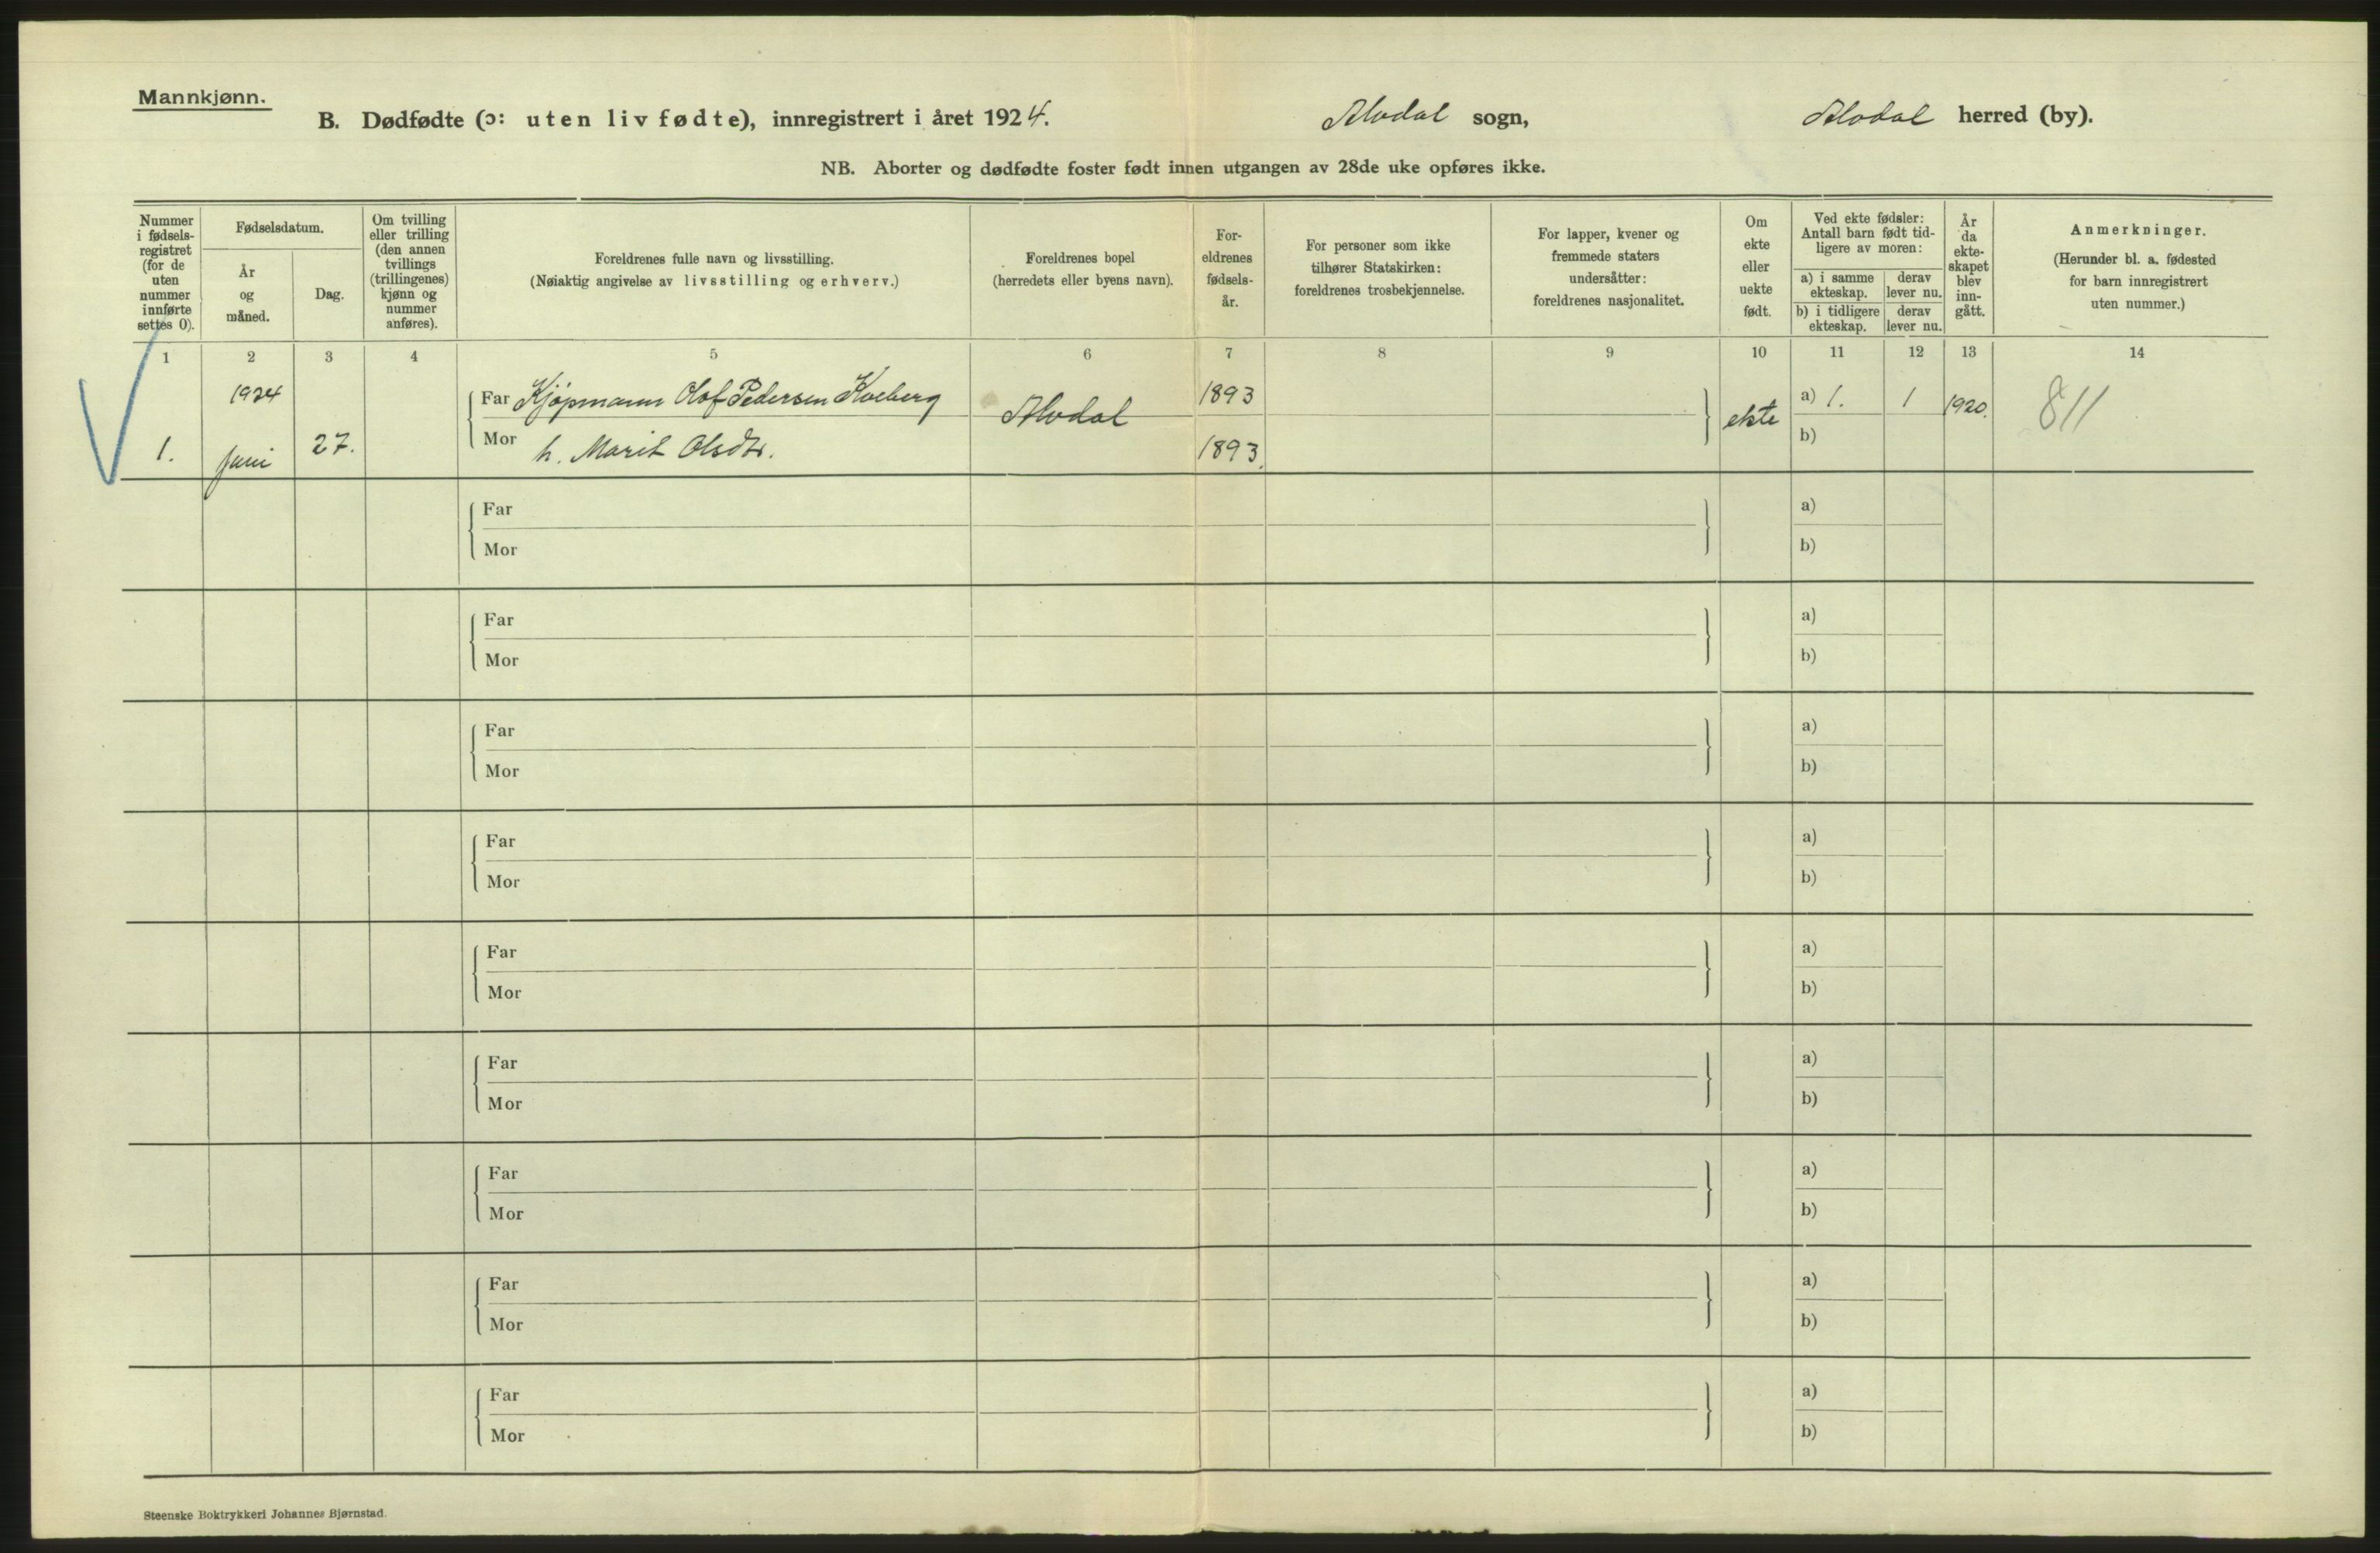 Mannkjønn.
B. Dødfødte (ɔ: uten liv fødte), innregistrert i året 1924. Alvdal sogn, Alvdal herred (by).
NB. Aborter og dødfødte foster født innen utgangen av 28de uke opføres ikke.
Nummer
i fødsels-
registret
(for de
uten
nummer
innførte
settes 0).
Fødselsdatum.
År
og
måned.
Dag.
Om tvilling
eller trilling
(den annen
tvillings
(trillingenes)
kjønn og
nummer
anføres).
Foreldrenes fulle navn og livsstilling.
(Nøiaktig angivelse av livsstilling og erhverv.)
Foreldrenes bopel
(herredets eller byens navn).
For-
eldrenes
fødsels-
år.
For personer som ikke
tilhører Statskirken:
foreldrenes trosbekjennelse.
For lapper, kvener og
fremmede staters
undersåtter:
foreldrenes nasjonalitet.
Om
ekte
eller
uekte
født.
Ved ekte fødsler:
Antall barn født tid-
ligere av moren:
a) i samme
ekteskap.
derav
lever nu.
b) i tidligere
ekteskap.
derav
lever nu.
År
da
ekte-
skapet
blev
inn-
gått.
Anmerkninger.
(Herunder bl. a. fødested
for barn innregistrert
uten nummer.)
1 2 3 4 5 6 7 8 9 10 11 12 13 14
1924
Far Kjøpmann Olof Pedersen Koeberg Alvdal 1893 ekte a) 1. 1 1920. 811
1. juni 27. Mor h. Marit Olsdtr. 1893. b)
Far a)
Mor b)
Far a)
Mor b)
Far a)
Mor b)
Far a)
Mor b)
Far a)
Mor b)
Far a)
Mor b)
Far a)
Mor b)
Far a)
Mor b)
Far a)
Mor b)
Steenske Boktrykkeri Johannes Bjørnstad.